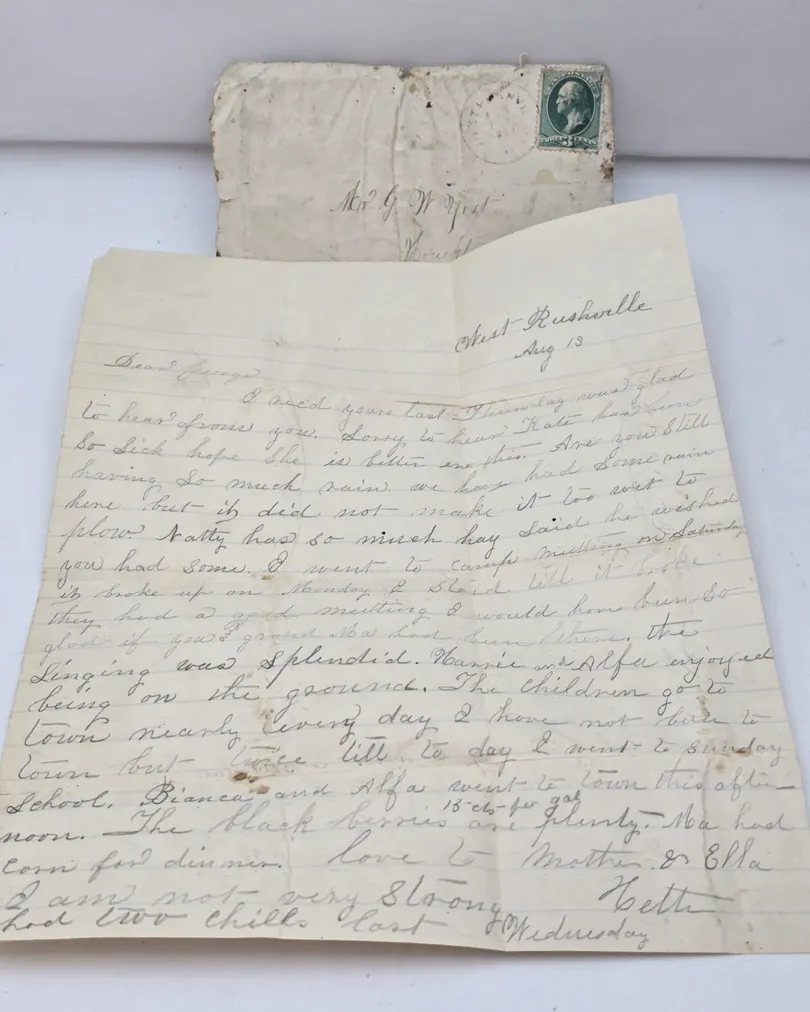 Mr G W Yost
West Rushville
Aug 13
Dear George
I rec'd yours last Thursday was glad
to hear from you. Sorry to hear Kate has been
so sick hope she is better ere this. Are you still
having so much rain. we have had some rain
here but it did not make it too wet to
plow. Natty has so much hay said he wished
you had some. I went to camp meeting on Saturday
it broke up on Monday I staid till it broke
they had a good meeting I would have been so
glad if you & grand Ma had been there. the
singing was splendid. Harrie and Alfa enjoyed
being on the ground. The children go to
town nearly every day I have not been to
town but twice till to day I went to sunday
school. Bianca and Alfa went to town this after-
noon. The black berries are plenty. 15 cts per gal Ma had
corn for dinner. love to Mother & Ella
I am not very strong Hettie
had two chills last Wednesday